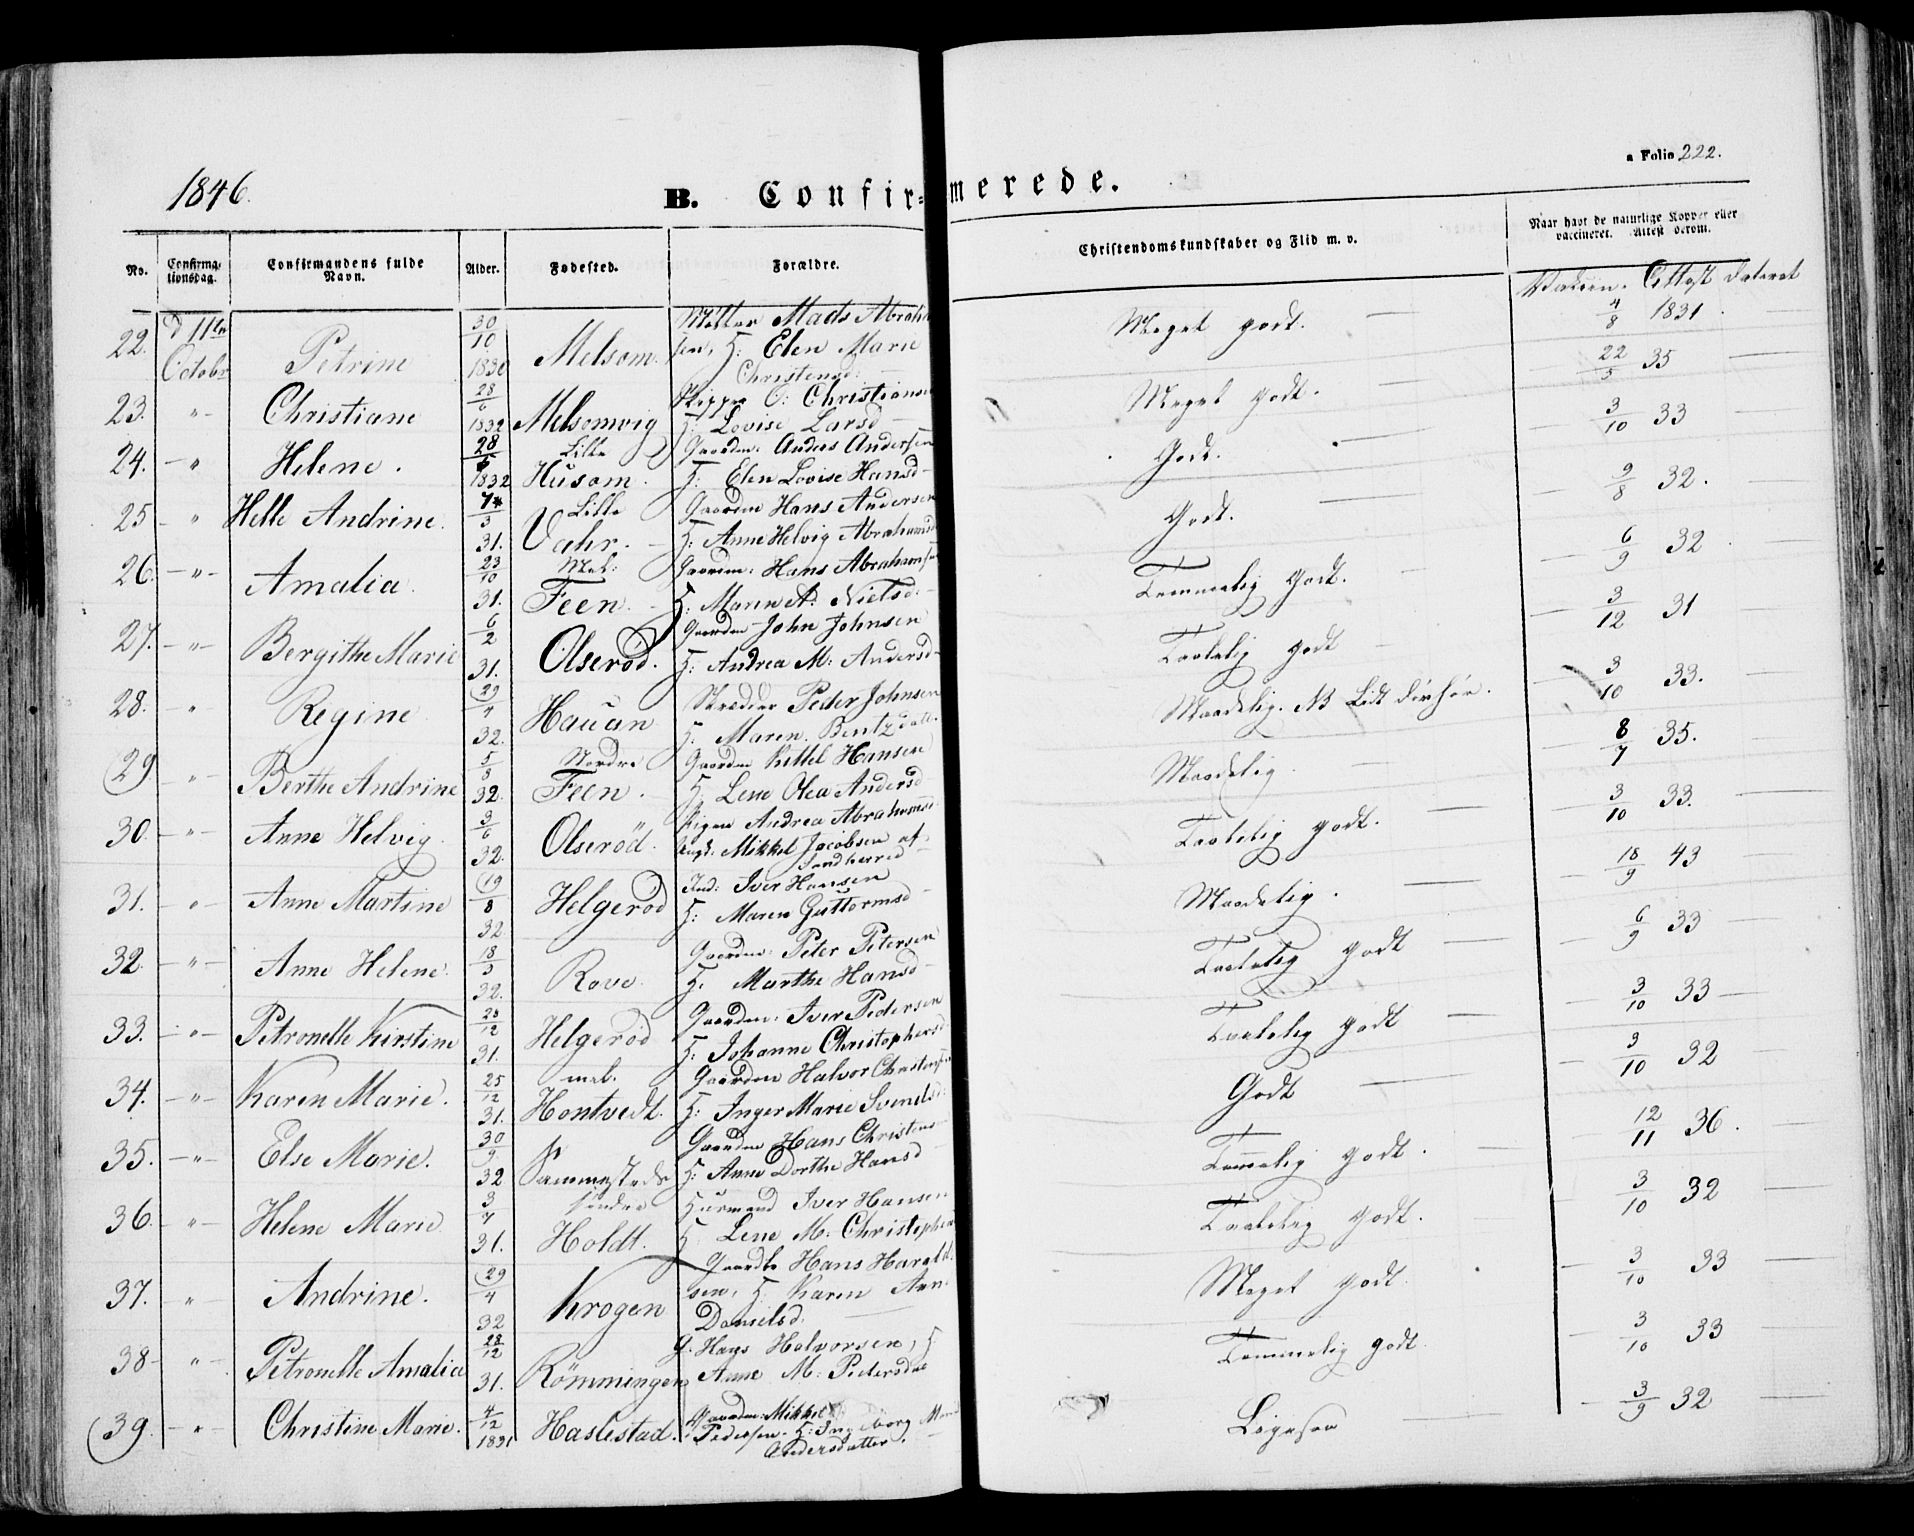 1846.
B. Confirmerede.
a Folio 222.
No.
Confirmationsdag.
Confirmandens fulde Navn.
Alder.
Fødested.
Forældre.
Christendomskundskaber og Flid m. v.
Naar havt de naturlige Kopper eller vaccineret. Attest derom.
22. d 11te Octobr Petrine 30/10 1830 Melsom. Mads Abrahamsen, H: Elen Marie Christensd: Meget godt. Vaccin. Attest dateret 4/8 1831.
23. " Christiane 28/6 1832 Melsomvig Skipper O: Christiansen H: Lovise Larsd Meget godt. 22/5 35
24. " Helene. 28/5 1832 Lille Husom. Gaardm: Anders Andersen H: Elen Lovise Hansd Godt. 3/10 33
25 " Helle Andrine. 14/3 31. Lille Vahr. Gaardm Hans Andersen H: Anne Helvig Abrahamsd Godt. 9/8 32.
26. " Amalia. 23/10 31. Mel: Feen. Gaardm: Hans Abrahamsen H: Maren A: Nielsd: Temmelig godt. 6/9 32
27. " Bergithe Marie 6/2 31. Olserød. Gaardm John Johnsen H: Andrea M: Andersd Taalelig godt 3/12 31
28. " Regine 29/4 32. Hauan Skredder Peder Johnsen H: Maren Bentzdatt. Maadelig. NB Lidt døvhør. 3/10 33.
29 " Berthe Andrine 5/3 32. Nordre Feen. Gaardm Kittel Hansen H. Lene Olea Andersd Maadelig. 8/7 35.
30. " Anne Helvig. 3/6 32. Olserød. Pigen Andrea Abrahamsd Ungk: Mikkel Jacobsen af Sandherred Taalelig godt. 3/10 33.
31. " Anne Martine 19/8 32 Helgerød Ind: Iver Hansen H: Maren Guttormsd Maadelig. 18/9 43
32. " Anne Helene. 18/3 32. Rove. Gaardm: Peter Petersen H: Marthe Hansd Taalelig godt 6/9 33
33. " Petronelle Kirstine 28/12 31. Helgerød Gaardm: Iver Pedersen H: Johanne Christophersd Taalelig godt 3/10 33
34. " Karen Marie. 25/12 31. mel. Hontvedt. Gaardm Halvor Christensen H: Inger Marie Svendsd: Godt 3/10 32
35. " Else Marie. 30/9 32 Sammesteds Gaardm Hans Christens H: Anne Dorthe Hansd Temmelig godt. 12/11 36.
36. " Helene Marie 3/4 31. søndre Holdt. Huusmand Iver Hansen H. Lene M. Christophers Taalelig godt. 3/10 32
37. " Andrine. 29/4 32 Krogen Hans Haraldsen, H: Karen Ann Danielsd. Meget godt. 3/10 33
38 " Petronelle Amalia 28/12 31. Römmingen G. Hans Halvorsen, H Anne M. Pedersdat Temmelig godt 3/10 33
39. " Christine Marie. 4/12 1831 Haslestad. Gaardm: Mikkel Pedersen. H: Ingeborg Marie Andersdatter. Ligesaa 3/9 32